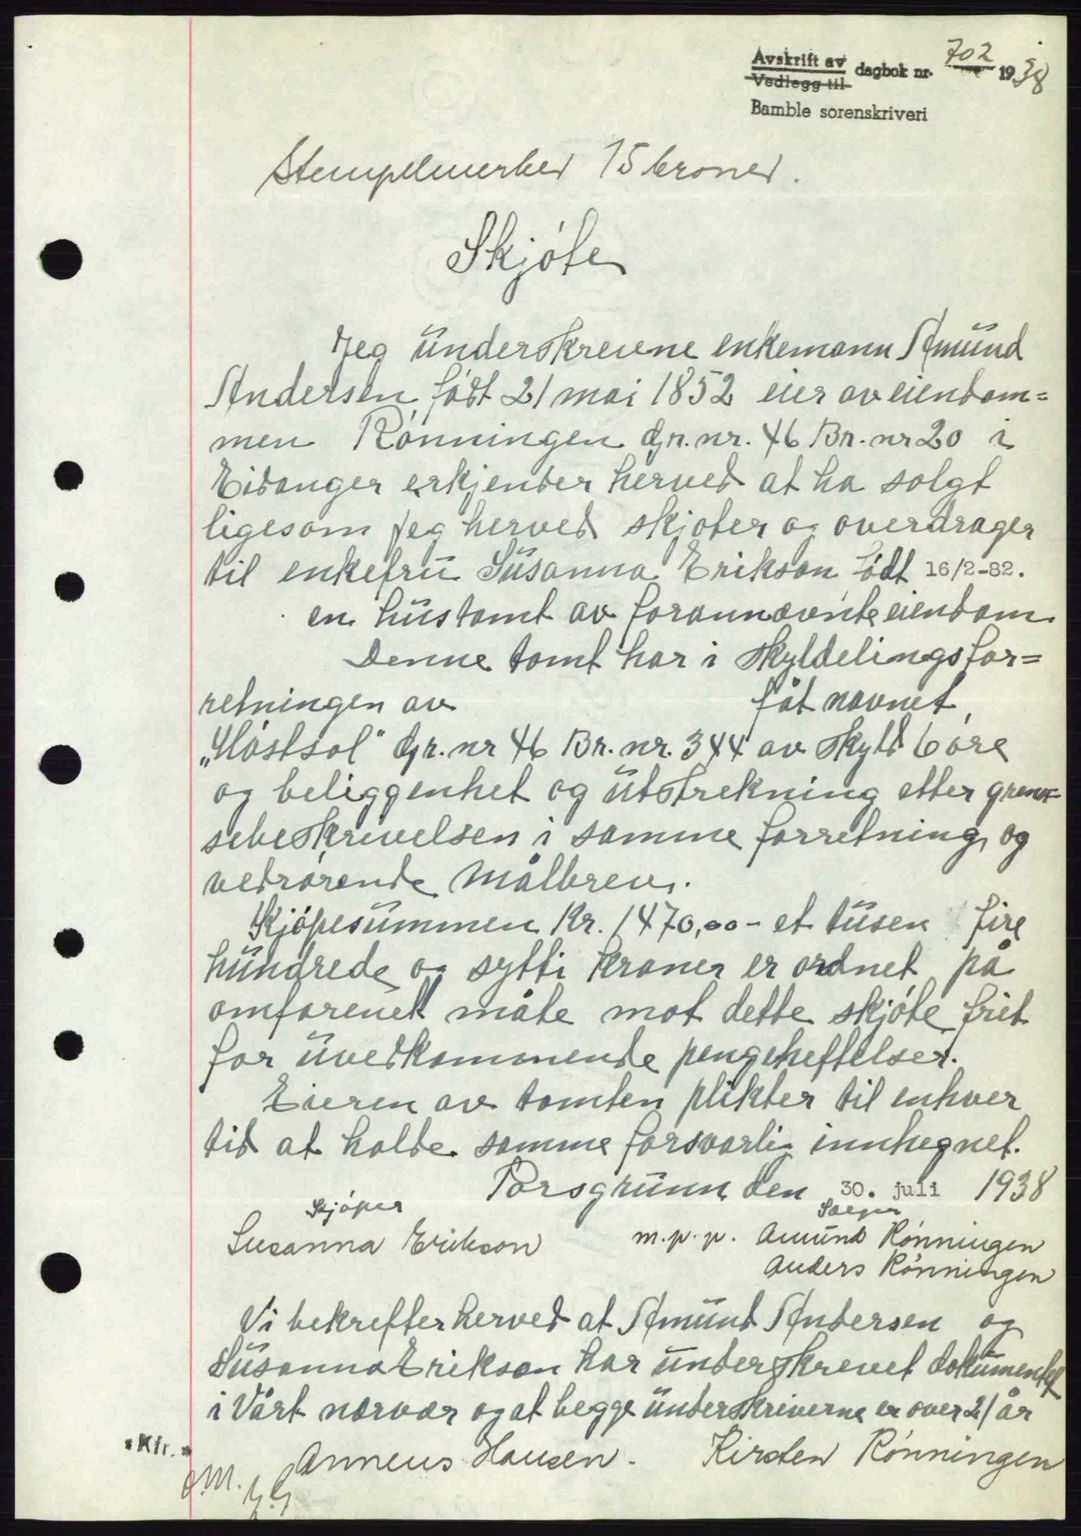 Avskrift av
Vedlegg til dagbok nr. 702 1938
Bamble sorenskriveri
Stempelmerker 15 kroner.
Skjöte
Jeg underskrevne enkemann Amund
Andersen födt 21 mai 1852 eier av eiendom=
men Rönningen Gr. nr. 46 Br. nr 20 i
Eidanger erkjender herved at ha solgt
ligesom jeg herved skjöter og overdrager
til enkefru Susanna Erikson födt 16/2-82.
en hustomt av forannævnte eiendom.
Denne tomt har i skyldelingsfor=
retningen av fåt navnet,
„Höstsol" Gr. nr 46 Br. nr. 344 av skyld 6 öre
og beliggenhet og utstrekning etter gren=
sebeskrivelsen i samme forretning og
vedrörende målbrev.
Kjöpesummen Kr. 1470,00- et tusen fire
hundrede og sytti kroner er ordnet på
omforenet måte mot dette skjöte frit
for uvedkommende pengeheftelser.
Eieren av tomten plikter til enhver
tid at holde samme forsvarlig innhegnet.
Porsgrunn den 30. juli 1938
Kjöper Sælger
Susanna Erikson m. p. p. Amund Rönningen
Anders Rönningen
Vi bekrefter herved at Amund Andersen og
Susanna Erikson har underskrevet dokumentet
i Vårt nærvær og at begge underskriverne er over 21 år
Kfr.
Anneus Hansen. Kirsten Rönningen